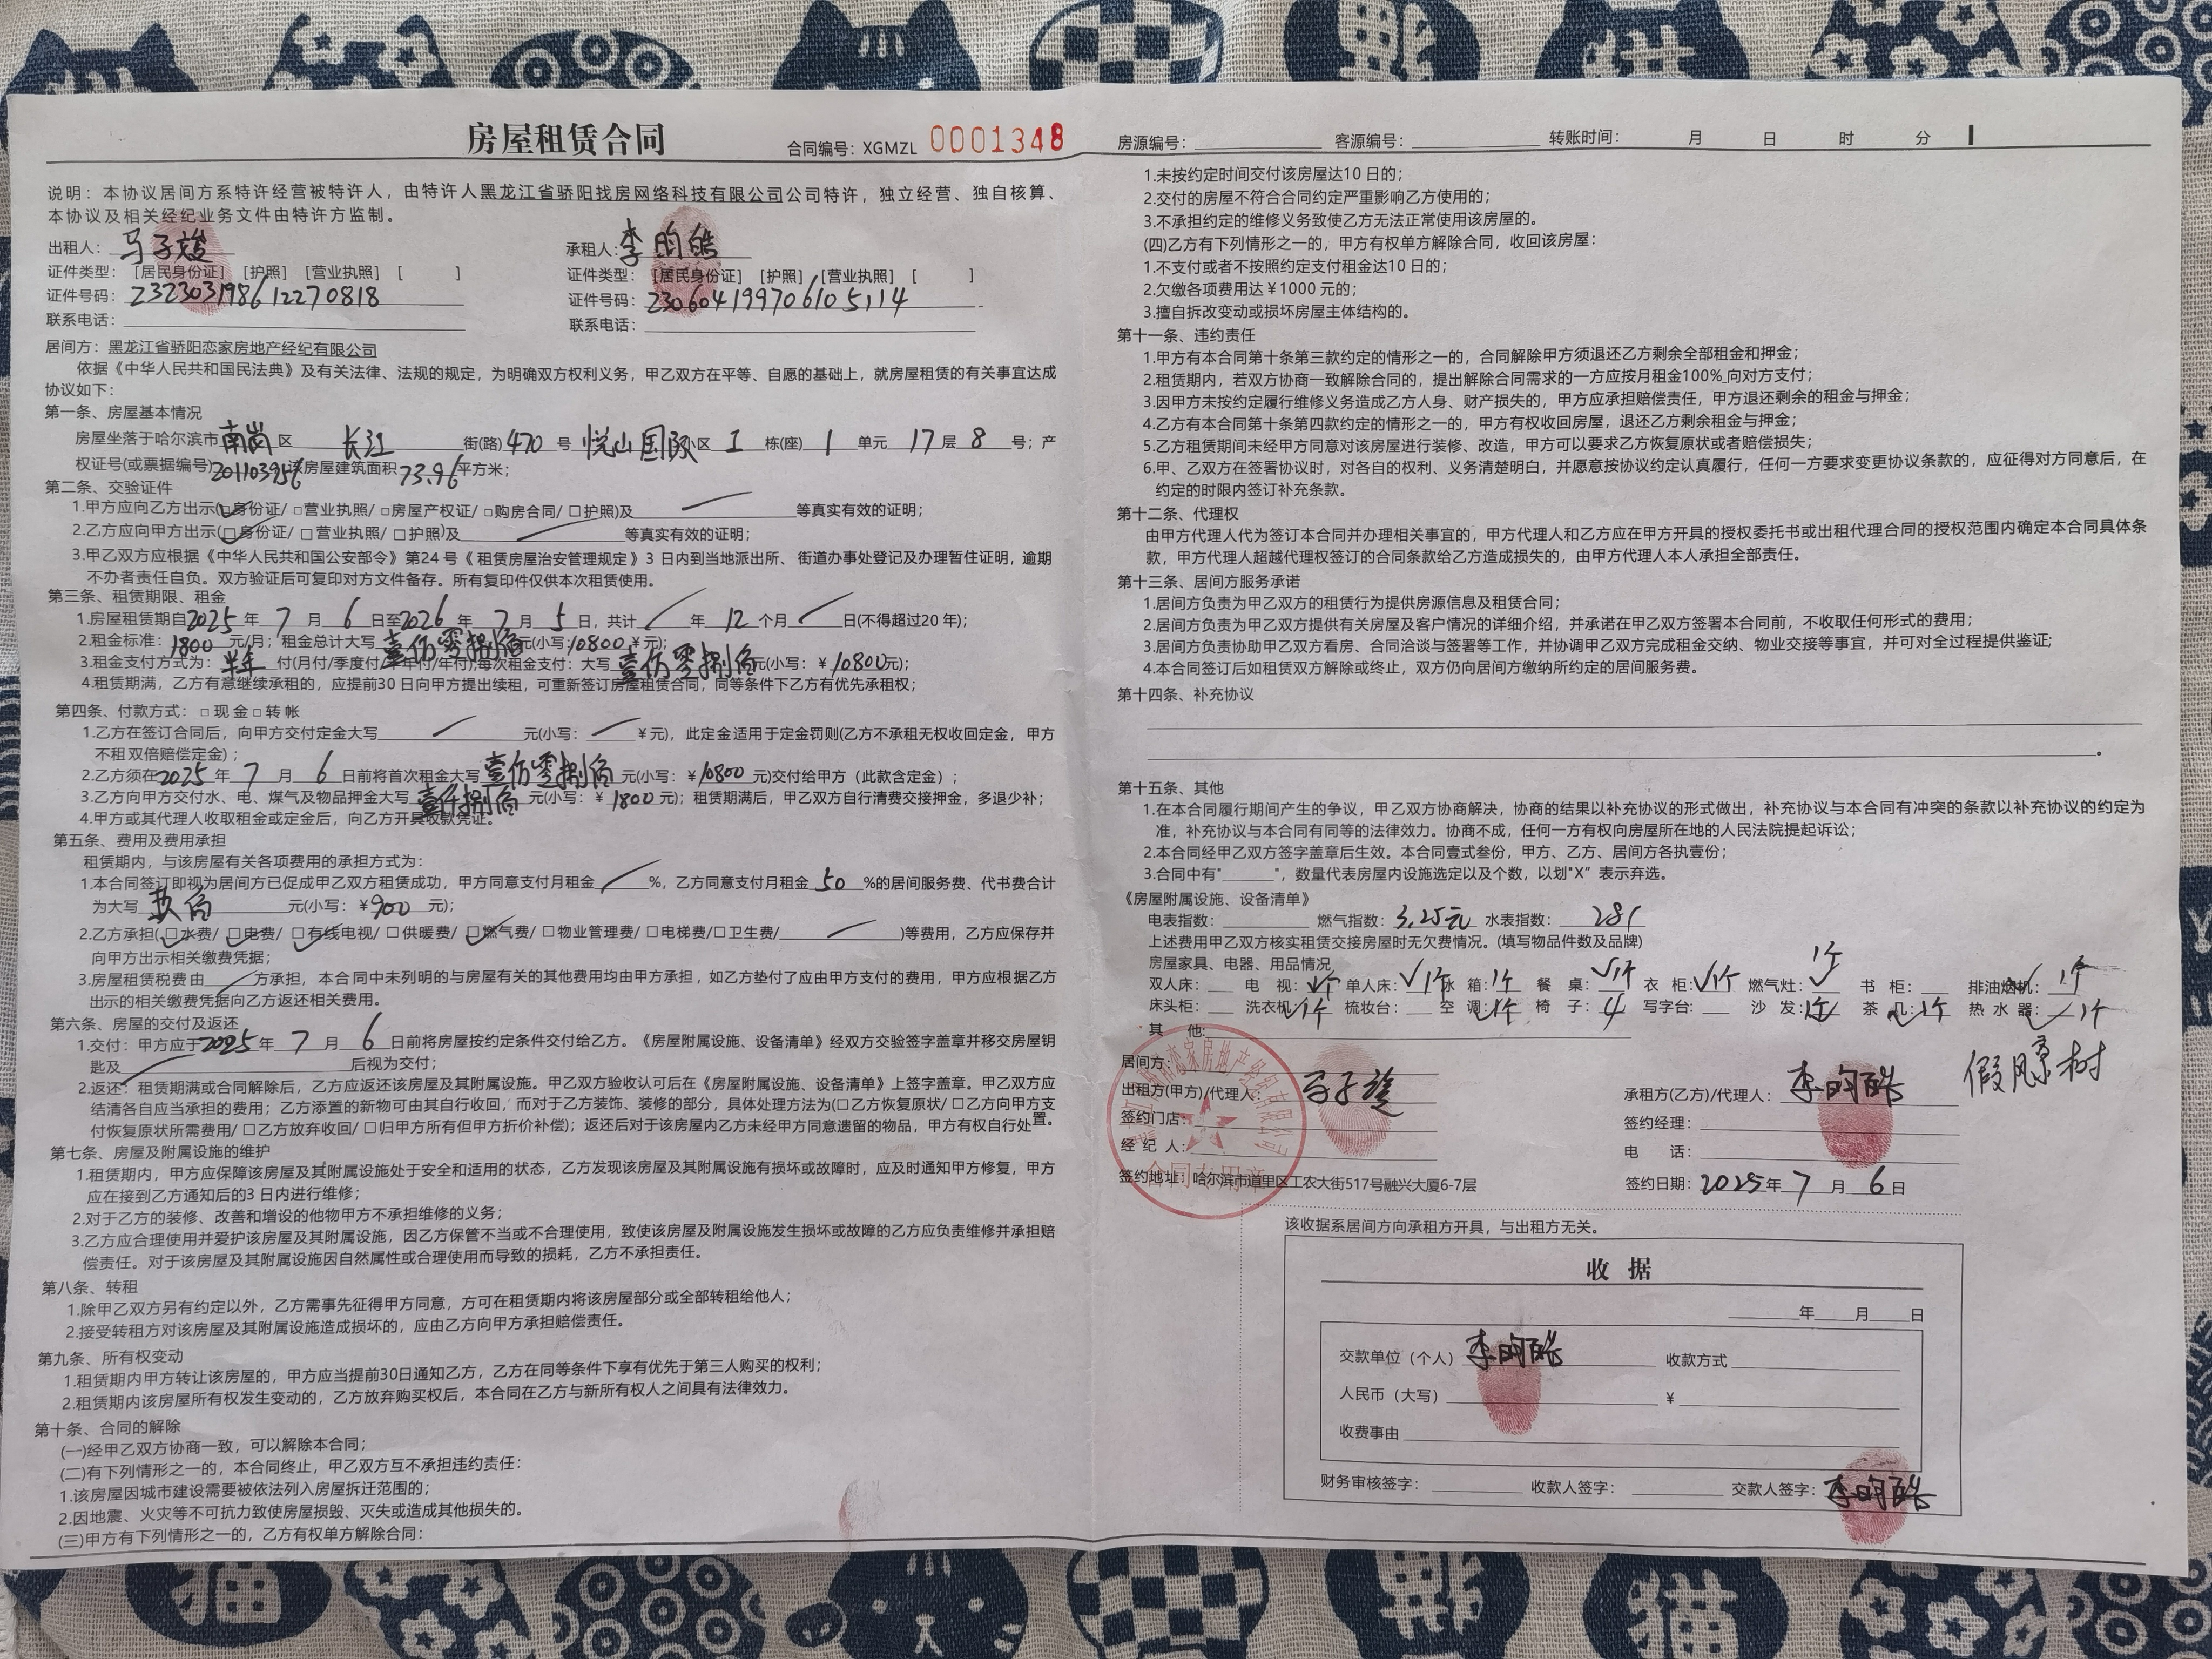 房屋租赁合同
合同编号：XGMZL 0001348
说明：本协议居间方系特许经营被特许人，由特许人黑龙江省骄阳找房网络科技有限公司公司特许，独立经营、独自核算、
本协议及相关经纪业务文件由特许方监制。
出租人：马子旋 承租人：李昀皓
证件类型：[居民身份证] [护照] [营业执照] [ ] 证件类型：[居民身份证] [护照] [营业执照] [ ]
证件号码：232303198612270818 证件号码：230604199706105114
联系电话： 联系电话：
居间方：黑龙江省骄阳恋家房地产经纪有限公司
依据《中华人民共和国民法典》及有关法律、法规的规定，为明确双方权利义务，甲乙双方在平等、自愿的基础上，就房屋租赁的有关事宜达成
协议如下：
第一条、房屋基本情况
房屋坐落于哈尔滨市南岗区 长江 街(路)470号 悦山国际小区 I 栋(座) 1 单元 17 层 8 号；产
权证号(或票据编号)201103956该房屋建筑面积73.96平方米；
第二条、交验证件
1.甲方应向乙方出示(☑身份证/ □营业执照/ □房屋产权证/ □购房合同/ □护照)及 等真实有效的证明；
2.乙方应向甲方出示(☑身份证/ □营业执照/ □护照)及 等真实有效的证明；
3.甲乙双方应根据《中华人民共和国公安部令》第24号《租赁房屋治安管理规定》3日内到当地派出所、街道办事处登记及办理暂住证明，逾期
不办者责任自负。双方验证后可复印对方文件备存。所有复印件仅供本次租赁使用。
第三条、租赁期限、租金
1.房屋租赁期自2025年7月6日至2026年7月5日，共计 年12个月 日(不得超过20年)；
2.租金标准：1800元/月；租金总计大写壹万零捌佰元(小写：10800￥元)；
3.租金支付方式为：半年 付(月付/季度付/半年付/年付)；每次租金支付：大写壹万零捌佰元(小写：￥10800元)；
4.租赁期满，乙方有意继续承租的，应提前30日向甲方提出续租，可重新签订房屋租赁合同，同等条件下乙方有优先承租权；
第四条、付款方式：□现金□转帐
1.乙方在签订合同后，向甲方交付定金大写 元(小写： ￥元)，此定金适用于定金罚则(乙方不承租无权收回定金，甲方
不租双倍赔偿定金)；
2.乙方须在2025年7月6日前将首次租金大写壹万零捌佰元(小写：￥10800元)交付给甲方（此款含定金）；
3.乙方向甲方交付水、电、煤气及物品押金大写壹仟捌佰元(小写：￥1800元)；租赁期满后，甲乙双方自行清费交接押金，多退少补；
4.甲方或其代理人收取租金或定金后，向乙方开具收款凭证。
第五条、费用及费用承担
租赁期内，与该房屋有关各项费用的承担方式为：
1.本合同签订即视为居间方已促成甲乙双方租赁成功，甲方同意支付月租金 %，乙方同意支付月租金50%的居间服务费、代书费合计
为大写玖佰元(小写：￥900元)；
2.乙方承担(☑水费/ ☑电费/ ☑有线电视/ □供暖费/ ☑燃气费/ □物业管理费/ □电梯费/□卫生费/ )等费用，乙方应保存并
向甲方出示相关缴费凭据；
3.房屋租赁税费由 方承担，本合同中未列明的与房屋有关的其他费用均由甲方承担，如乙方垫付了应由甲方支付的费用，甲方应根据乙方
出示的相关缴费凭据向乙方返还相关费用。
第六条、房屋的交付及返还
1.交付：甲方应于2025年7月6日前将房屋按约定条件交付给乙方。《房屋附属设施、设备清单》经双方交验签字盖章并移交房屋钥
匙及 后视为交付；
2.返还：租赁期满或合同解除后，乙方应返还该房屋及其附属设施。甲乙双方验收认可后在《房屋附属设施、设备清单》上签字盖章。甲乙双方应
结清各自应当承担的费用；乙方添置的新物可由其自行收回，而对于乙方装饰、装修的部分，具体处理方法为(□乙方恢复原状/ □乙方向甲方支
付恢复原状所需费用/ □乙方放弃收回/ □归甲方所有但甲方折价补偿)；返还后对于该房屋内乙方未经甲方同意遗留的物品，甲方有权自行处置。
第七条、房屋及附属设施的维护
1.租赁期内，甲方应保障该房屋及其附属设施处于安全和适用的状态，乙方发现该房屋及其附属设施有损坏或故障时，应及时通知甲方修复，甲方
应在接到乙方通知后的3日内进行维修；
2.对于乙方的装修、改善和增设的他物甲方不承担维修的义务；
3.乙方应合理使用并爱护该房屋及其附属设施，因乙方保管不当或不合理使用，致使该房屋及附属设施发生损坏或故障的乙方应负责维修并承担赔
偿责任。对于该房屋及其附属设施因自然属性或合理使用而导致的损耗，乙方不承担责任。
第八条、转租
1.除甲乙双方另有约定以外，乙方需事先征得甲方同意，方可在租赁期内将该房屋部分或全部转租给他人；
2.接受转租方对该房屋及其附属设施造成损坏的，应由乙方向甲方承担赔偿责任。
第九条、所有权变动
1.租赁期内甲方转让该房屋的，甲方应当提前30日通知乙方，乙方在同等条件下享有优先于第三人购买的权利；
2.租赁期内该房屋所有权发生变动的，乙方放弃购买权后，本合同在乙方与新所有权人之间具有法律效力。
第十条、合同的解除
(一)经甲乙双方协商一致，可以解除本合同；
(二)有下列情形之一的，本合同终止，甲乙双方互不承担违约责任：
1.该房屋因城市建设需要被依法列入房屋拆迁范围的；
2.因地震、火灾等不可抗力致使房屋损毁、灭失或造成其他损失的。
(三)甲方有下列情形之一的，乙方有权单方解除合同：
房源编号： 客源编号： 转账时间： 月 日 时 分
1.未按约定时间交付该房屋达10日的；
2.交付的房屋不符合合同约定严重影响乙方使用的；
3.不承担约定的维修义务致使乙方无法正常使用该房屋的。
(四)乙方有下列情形之一的，甲方有权单方解除合同，收回该房屋：
1.不支付或者不按照约定支付租金达10日的；
2.欠缴各项费用达￥1000元的；
3.擅自拆改变动或损坏房屋主体结构的。
第十一条、违约责任
1.甲方有本合同第十条第三款约定的情形之一的，合同解除甲方须退还乙方剩余全部租金和押金；
2.租赁期内，若双方协商一致解除合同的，提出解除合同需求的一方应按月租金100%向对方支付；
3.因甲方未按约定履行维修义务造成乙方人身、财产损失的，甲方应承担赔偿责任，甲方退还剩余的租金与押金；
4.乙方有本合同第十条第四款约定的情形之一的，甲方有权收回房屋，退还乙方剩余租金与押金；
5.乙方租赁期间未经甲方同意对该房屋进行装修、改造，甲方可以要求乙方恢复原状或者赔偿损失；
6.甲、乙双方在签署协议时，对各自的权利、义务清楚明白，并愿意按协议约定认真履行，任何一方要求变更协议条款的，应征得对方同意后，在
约定的时限内签订补充条款。
第十二条、代理权
由甲方代理人代为签订本合同并办理相关事宜的，甲方代理人和乙方应在甲方开具的授权委托书或出租代理合同的授权范围内确定本合同具体条
款，甲方代理人超越代理权签订的合同条款给乙方造成损失的，由甲方代理人本人承担全部责任。
第十三条、居间方服务承诺
1.居间方负责为甲乙双方的租赁行为提供房源信息及租赁合同；
2.居间方负责为甲乙双方提供有关房屋及客户情况的详细介绍，并承诺在甲乙双方签署本合同前，不收取任何形式的费用；
3.居间方负责协助甲乙双方看房、合同洽谈与签署等工作，并协调甲乙双方完成租金交纳、物业交接等事宜，并可对全过程提供鉴证；
4.本合同签订后如租赁双方解除或终止，双方仍向居间方缴纳所约定的居间服务费。
第十四条、补充协议
。
第十五条、其他
1.在本合同履行期间产生的争议，甲乙双方协商解决，协商的结果以补充协议的形式做出，补充协议与本合同有冲突的条款以补充协议的约定为
准，补充协议与本合同有同等的法律效力。协商不成，任何一方有权向房屋所在地的人民法院提起诉讼；
2.本合同经甲乙双方签字盖章后生效。本合同壹式叁份，甲方、乙方、居间方各执壹份；
3.合同中有"＿＿＿"，数量代表房屋内设施选定以及个数，以划"X"表示弃选。
《房屋附属设施、设备清单》
电表指数： 燃气指数：3.25元 水表指数：281
上述费用甲乙双方核实租赁交接房屋时无欠费情况。(填写物品件数及品牌)
房屋家具、电器、用品情况
双人床： 电 视：√个 单人床：√1个 冰 箱：1个 餐 桌：√1个 衣 柜：√1个 燃气灶：√1个 书 柜： 排油烟机：√1个
床头柜： 洗衣机：√1个 梳妆台： 空 调：√1个 椅 子：4 写字台： 沙 发：1个 茶 几：√1个 热 水 器：√1个
其 他：
假风景树
居间方：
出租方(甲方)/代理人：马子旋 承租方(乙方)/代理人：李昀皓
签约门店： 签约经理：
经 纪 人： 电 话：
签约地址：哈尔滨市道里区工农大街517号融兴大厦6-7层 签约日期：2025年7月6日
合同专用章
该收据系居间方向承租方开具，与出租方无关。
收 据
年 月 日
交款单位（个人）李昀皓 收款方式
人民币（大写） ￥
收费事由
财务审核签字： 收款人签字： 交款人签字：李昀皓
熊
猫
猫
熊
猫